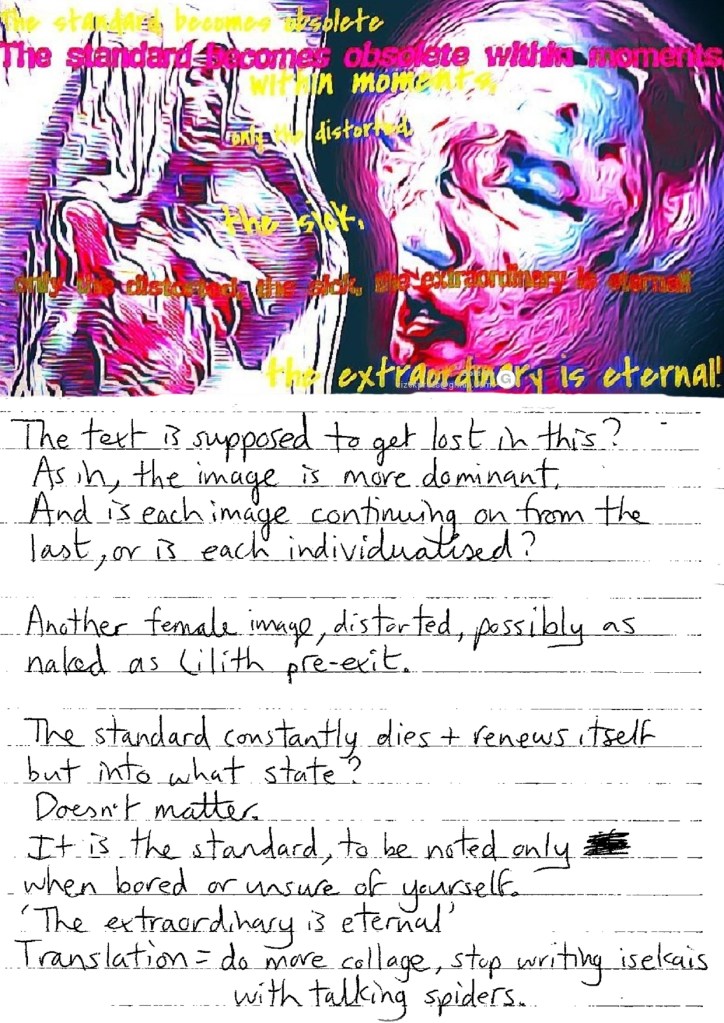 The standard becomes obsolete
The standard becomes obsolete within moments.
within moments,
only the distorted,
the sick,
only the distorted, the sick, the extraordinary is eternal!
the extraordinary is eternal!
The text is supposed to get lost in this?
As in, the image is more dominant.
And is each image continuing on from the
last, or is each individuatised?
Another female image, distorted, possibly as
naked as Lilith pre-exit.
The standard constantly dies + renews itself
but into what state?
Doesn't matter.
It is the standard, to be noted only
when bored or unsure of yourself.
'The extraordinary is eternal'
Translation = do more collage, stop writing isekais
with talking spiders.